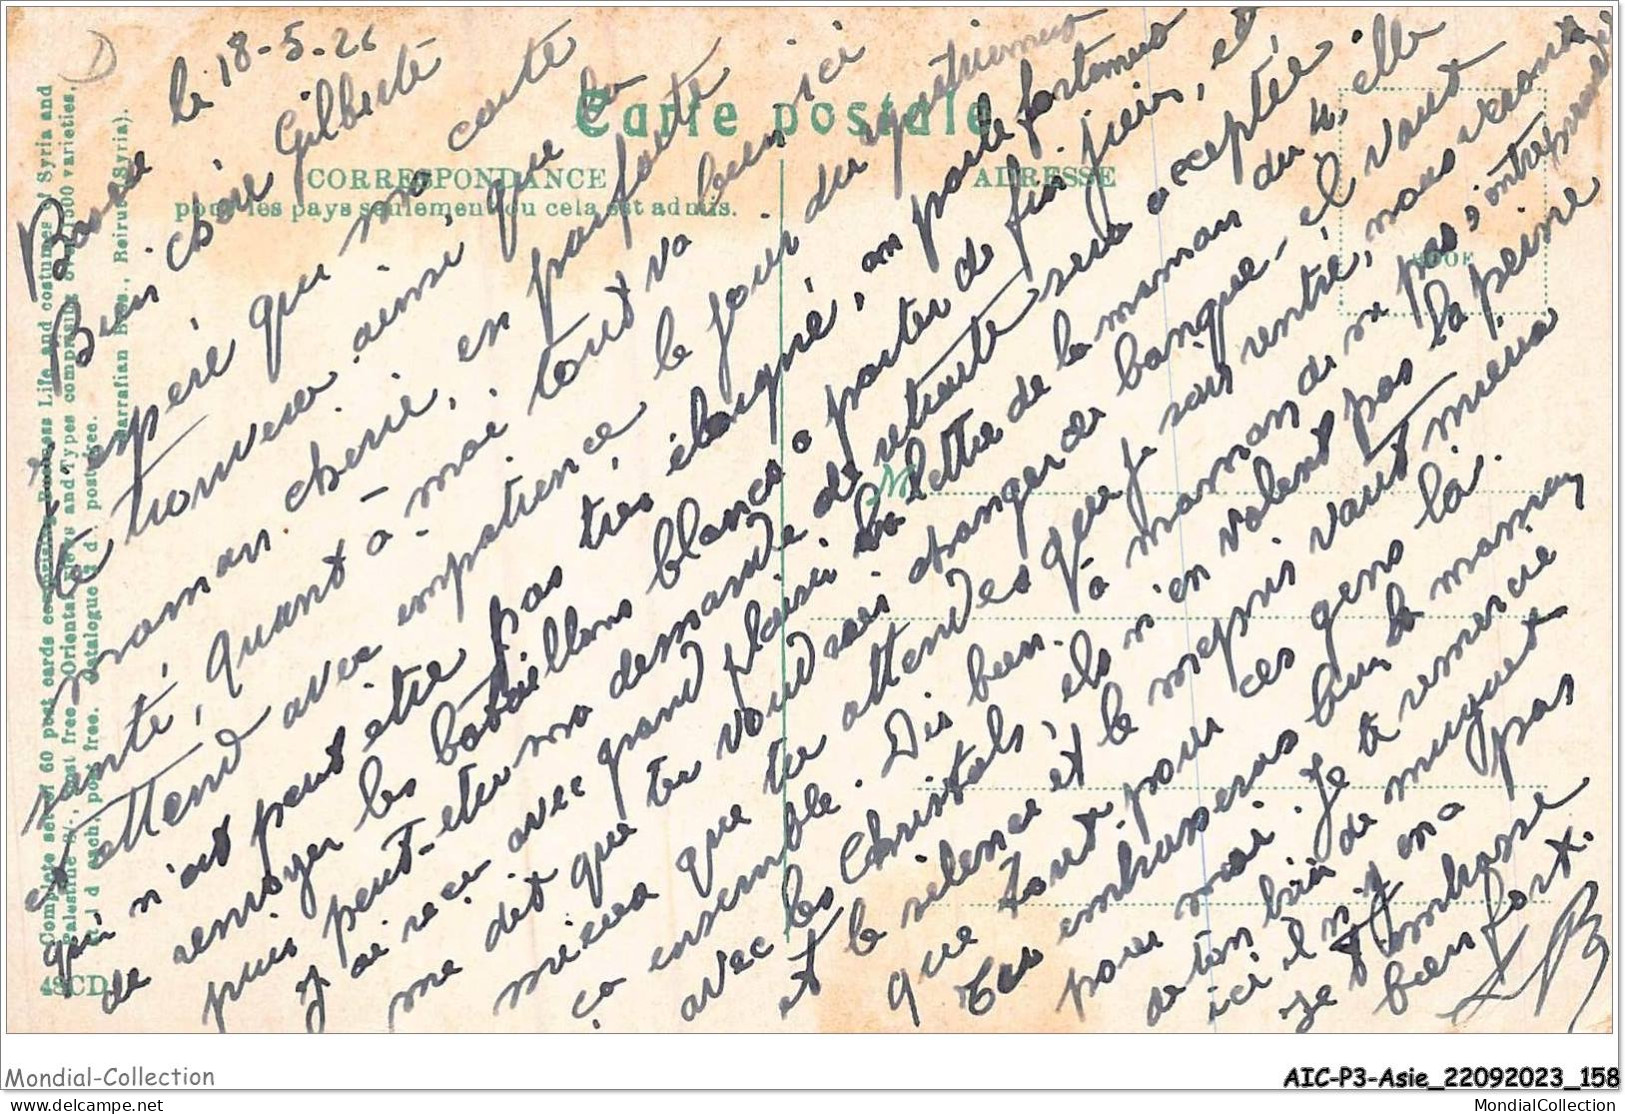 Carte postale
CORRESPONDANCE
ADRESSE
pour les pays seulement ou cela est admis.
Complete set of 60 post cards comprising Bourgess Life and costumes of Syria and
Palestine 3/, post free. Oriental Views and Types comprising over 1300 varieties,
1 d each, post free. Catalogue 2 d. postfree.
Sarrafian Bros., Beirut (Syria).
48CD
le 18-5-2
Bien chère Gilberte
J'espère que ma carte
te trouvera ainsi, que la
maman chérie, en parfaite
santé, quant à moi tout va bien ici
et attend avec impatience le jour du
qui n'est peut être pas très éloigné, on parle fortement
de renvoyer les bataillons blancs à partir de fin juin, et
puis peut-être ma demande de retraite sera acceptée.
J'ai reçu avec grand plaisir la lettre de la maman du 4, elle
me dit que tu voudrais changer de banque, il vaut
mieux que tu attendes que je sois rentré, nous verrons
ça ensemble. Dis bien à maman de ne pas s'
avec les Christals, ils n'en valent pas la peine
et le silence et le mépris vaut mieux
que tout pour ces gens là.
Tu embrasseras bien la maman
pour moi. Je te remercie
de ton brin de muguet
ici il n'y en a pas
Je t'embrasse
bien fort.
Mondial-Collection
AIC-P3-Asie_22092023_158
www.delcampe.net
MondialCollection